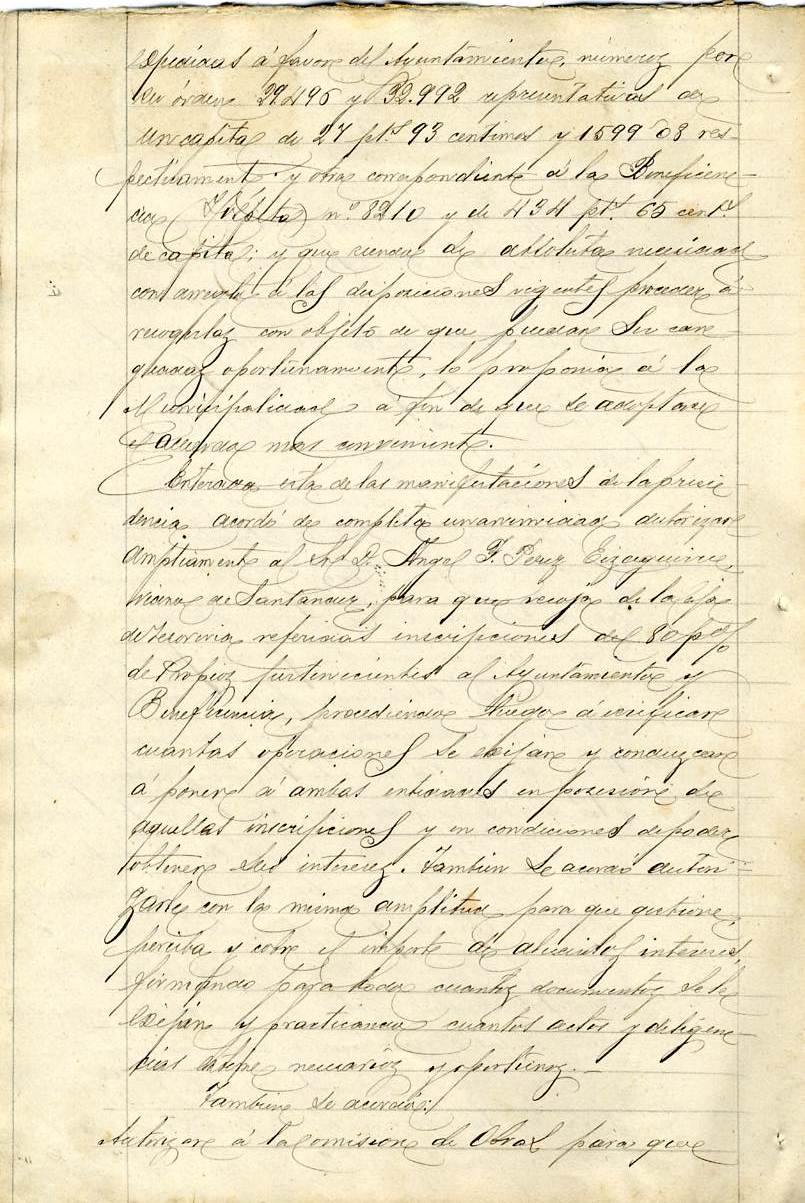 expedidas á favor del Ayuntamiento, números por
su orden 29.496 y 32.992 representativas de
un capital de 27 pts 93 centimos y 1599'08 res-
pectivamente y otra correspondiente á la Beneficen-
cia nº 8210 y de 434 pts. 65 cents
de capital; y que siendo de absoluta necesidad
con arreglo á las disposiciones vigentes proceder á
recogerlas con objeto de que puedan ser can-
geadas oportunamente, lo proponia á la
Municipalidad á fin de que se adoptase
el acuerdo mas conveniente.
Enterada esta de las manifestaciones de la presi-
dencia acordó de completa unanimidad autorizar
ampliamente al Sr. D. Angel F. Perez Eizaguirre,
vecino de Santander, para que recoja de la Caja
de Tesoreria referidas inscripciones del 80 p%
de Propios pertenecientes al Ayuntamiento y
Beneficencia, procediendo luego á verificar
cuantas operaciones se exijan y conduzcan
á poner á ambas entidades en posesión de
aquellas inscripciones y en condiciones de poder
obtener sus intereses. Tambien se acordó autori-
zarle con la misma amplitud para que gestione,
perciba y cobre el importe de aludidos intereses,
firmando para todo cuantos documentos se le
exijan y practicando cuantos actos y diligen-
cias estime necesarios y oportunos.—
Tambien se acordó:
Autorizar á la Comisión de Obras para que